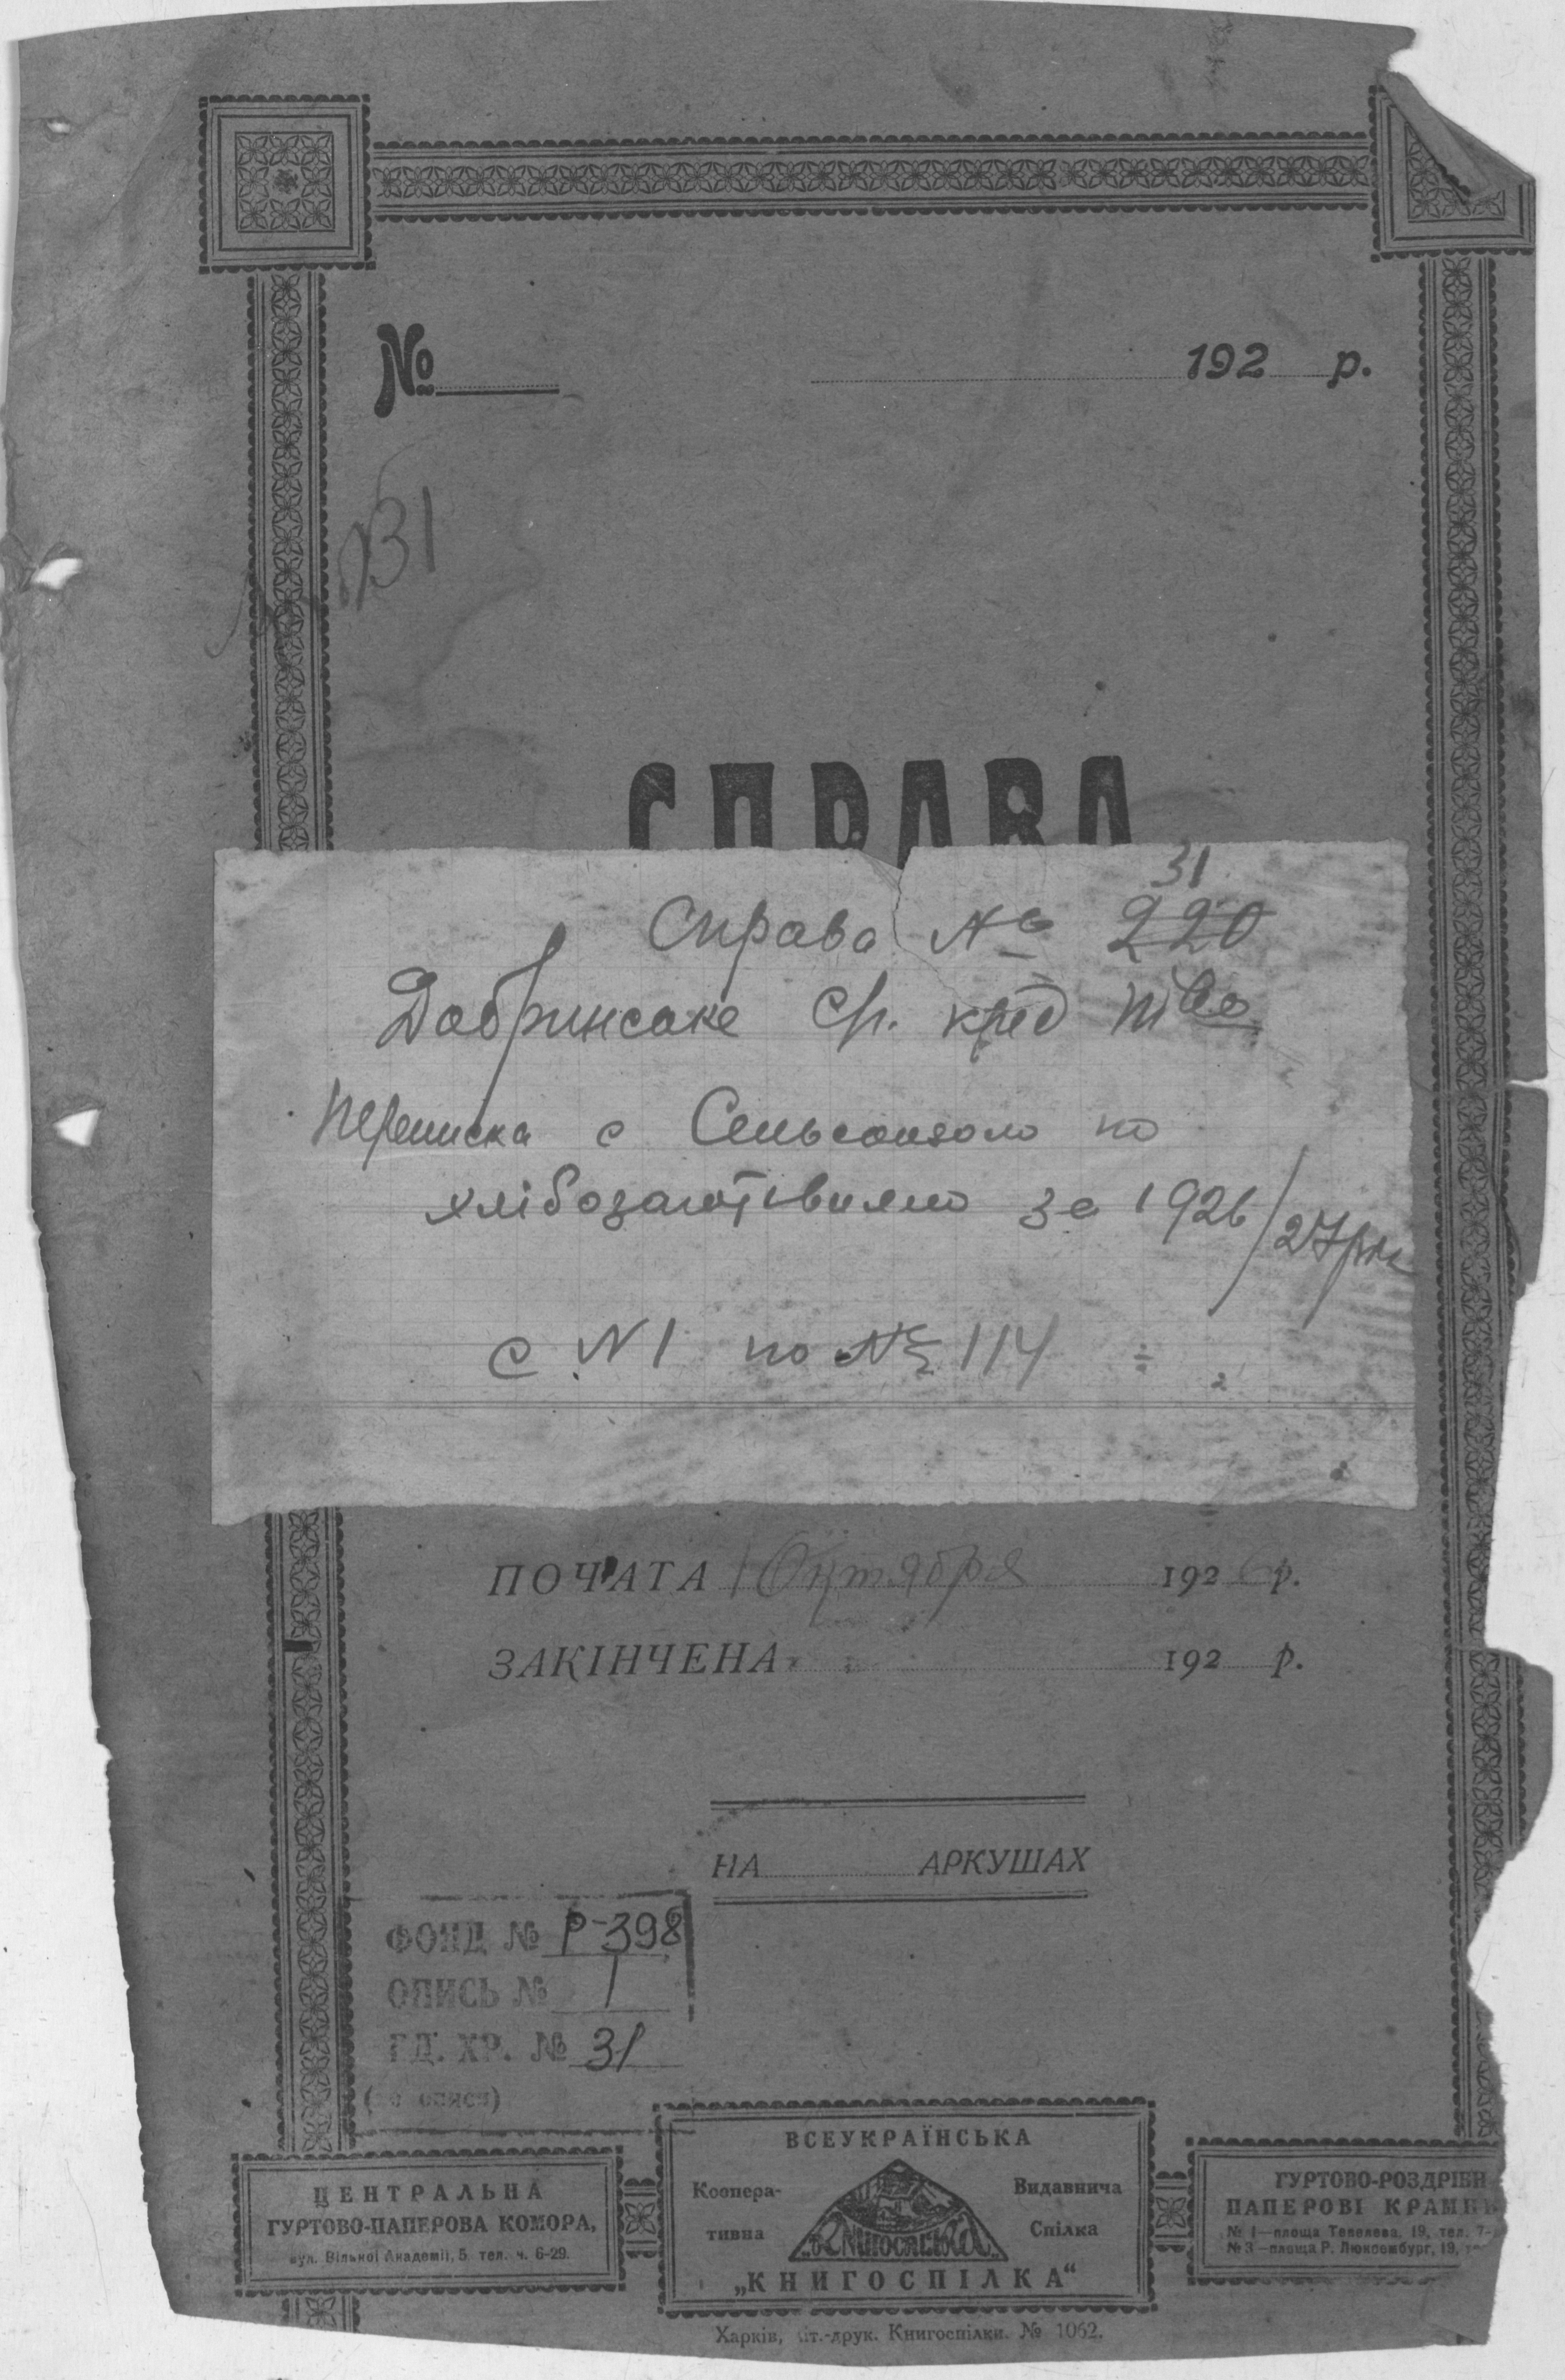 № 192 р.
31
СПРАВА
31
Справа № 220
Добринське с/г. кред т-во
Переписка с Сельсоюзом по
хлібозаготівлям за 1926/27 рік
с N 1 по № 114
ПОЧАТА 1 Октября 1926 р.
ЗАКІНЧЕНА 192 р.
НА АРКУШАХ
ФОНД № Р-398
ОПИСЬ № 1
ЕД. ХР. № 31
(по описи)
ЦЕНТРАЛЬНА
ГУРТОВО-ПАПЕРОВА КОМОРА,
вул. Вільної Академії, 5 тел. ч. 6-29.
ВСЕУКРАЇНСЬКА
Коопера- Видавнича
тивна Спілка
Книгоспілка
„КНИГОСПІЛКА“
ГУРТОВО-РОЗДРІБН
ПАПЕРОВІ КРАМН
№ 1—площа Тевелева, 19, тел. 7-
№ 3—площа Р. Люксембург, 19,
Харків, літ.-друк. Книгоспілки. № 1062.